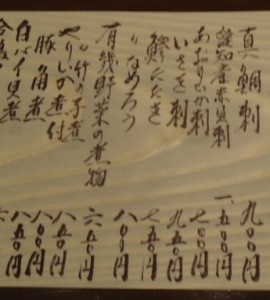 真鯛刺 九〇〇円
愛知産赤貝刺 一、五〇〇円
あおりいか刺 七〇〇円
いさき刺 九五〇円
鯵たたき 七五〇円
〃なめろう 八〇〇円
有機野菜の煮物 六五〇円
〃竹の子煮 八五〇円
やりいか煮付 八五〇円
豚角煮 八〇〇円
白バイ貝煮 八五〇円